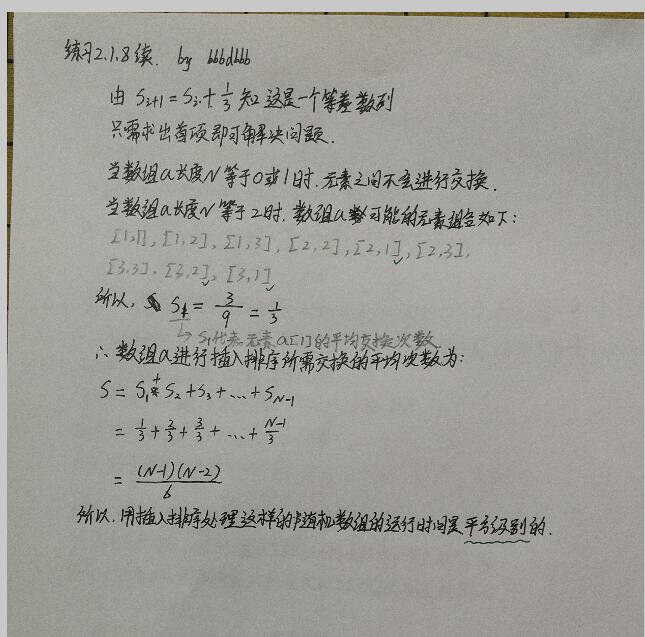 练习2.1.8续. by bbbdbbb
由 Si+1 = Si + 1/3 知 这是一个等差数列
只需求出首项即可解决问题.
当数组a长度N等于0或1时.元素之间不会进行交换.
当数组a长度N等于2时.数组a可能的元素组合如下:
[1,1], [1,2], [1,3], [2,2], [2,1], [2,3],
[3,3], [3,2], [3,1]
所以, S1 = 3/9 = 1/3
→ S1代表元素a[1]的平均交换次数.
∴ 数组a进行插入排序所需交换的平均次数为:
S = S1 + S2 + S3 + ... + SN-1
= 1/3 + 2/3 + 3/3 + ... + N-1/3
= (N-1)(N-2)/6
所以.用插入排序处理这样的随机数组的运行时间是平方级别的.